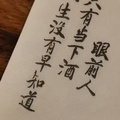 眼前人
只有当下酒
生沒有早知道